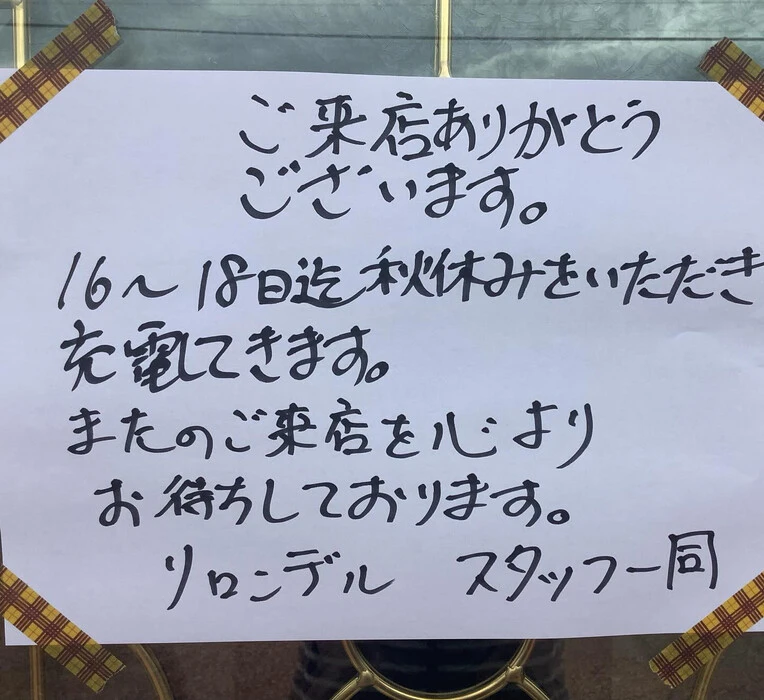 ご来店ありがとう
ございます。
16～18日迄秋休みをいただき
充電してきます。
またのご来店を心より
お待ちしております。
リロンデル　スタッフ一同